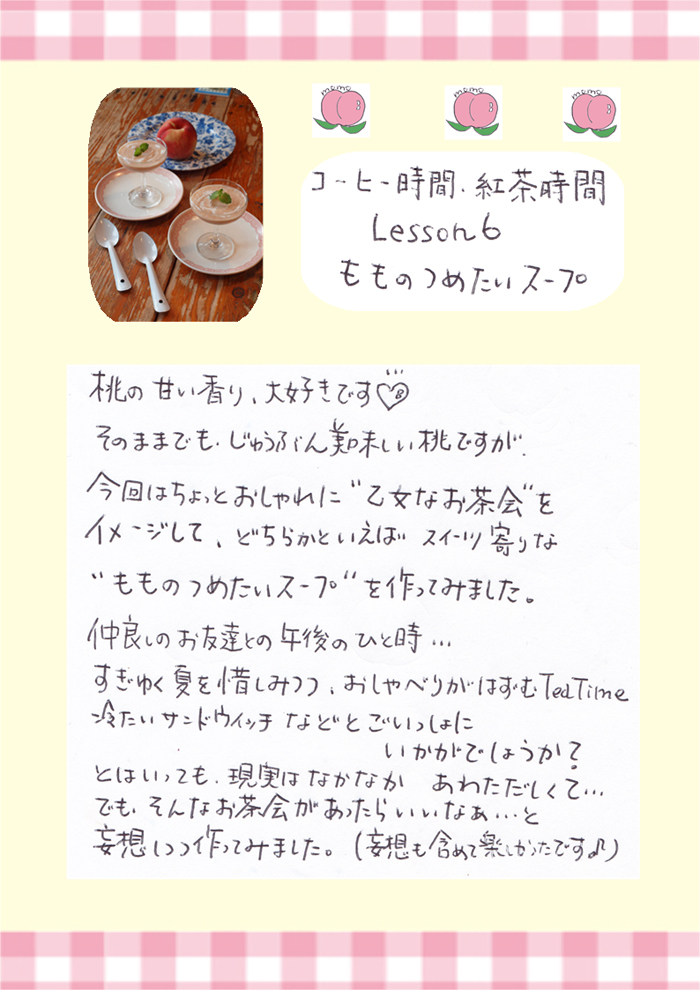 momo momo momo
コーヒー時間、紅茶時間
Lesson6
もものつめたいスープ
桃の甘い香り、大好きです♡
そのままでも、じゅうぶん美味しい桃ですが、
今回はちょっとおしゃれに“乙女なお茶会“を
イメージして、どちらかといえば スイーツ寄りな
“もものつめたいスープ“を作ってみました。
仲良しのお友達との午後のひと時…
すぎゆく夏を惜しみつつ、おしゃべりがはずむTeaTime
冷たいサンドウィッチなどとごいっしょに
いかがでしょうか?
とはいっても、現実はなかなか あわただしくて…
でも、そんなお茶会があったらいいなぁ…と
妄想しつつ作ってみました。(妄想も含めて楽しかったです♪)